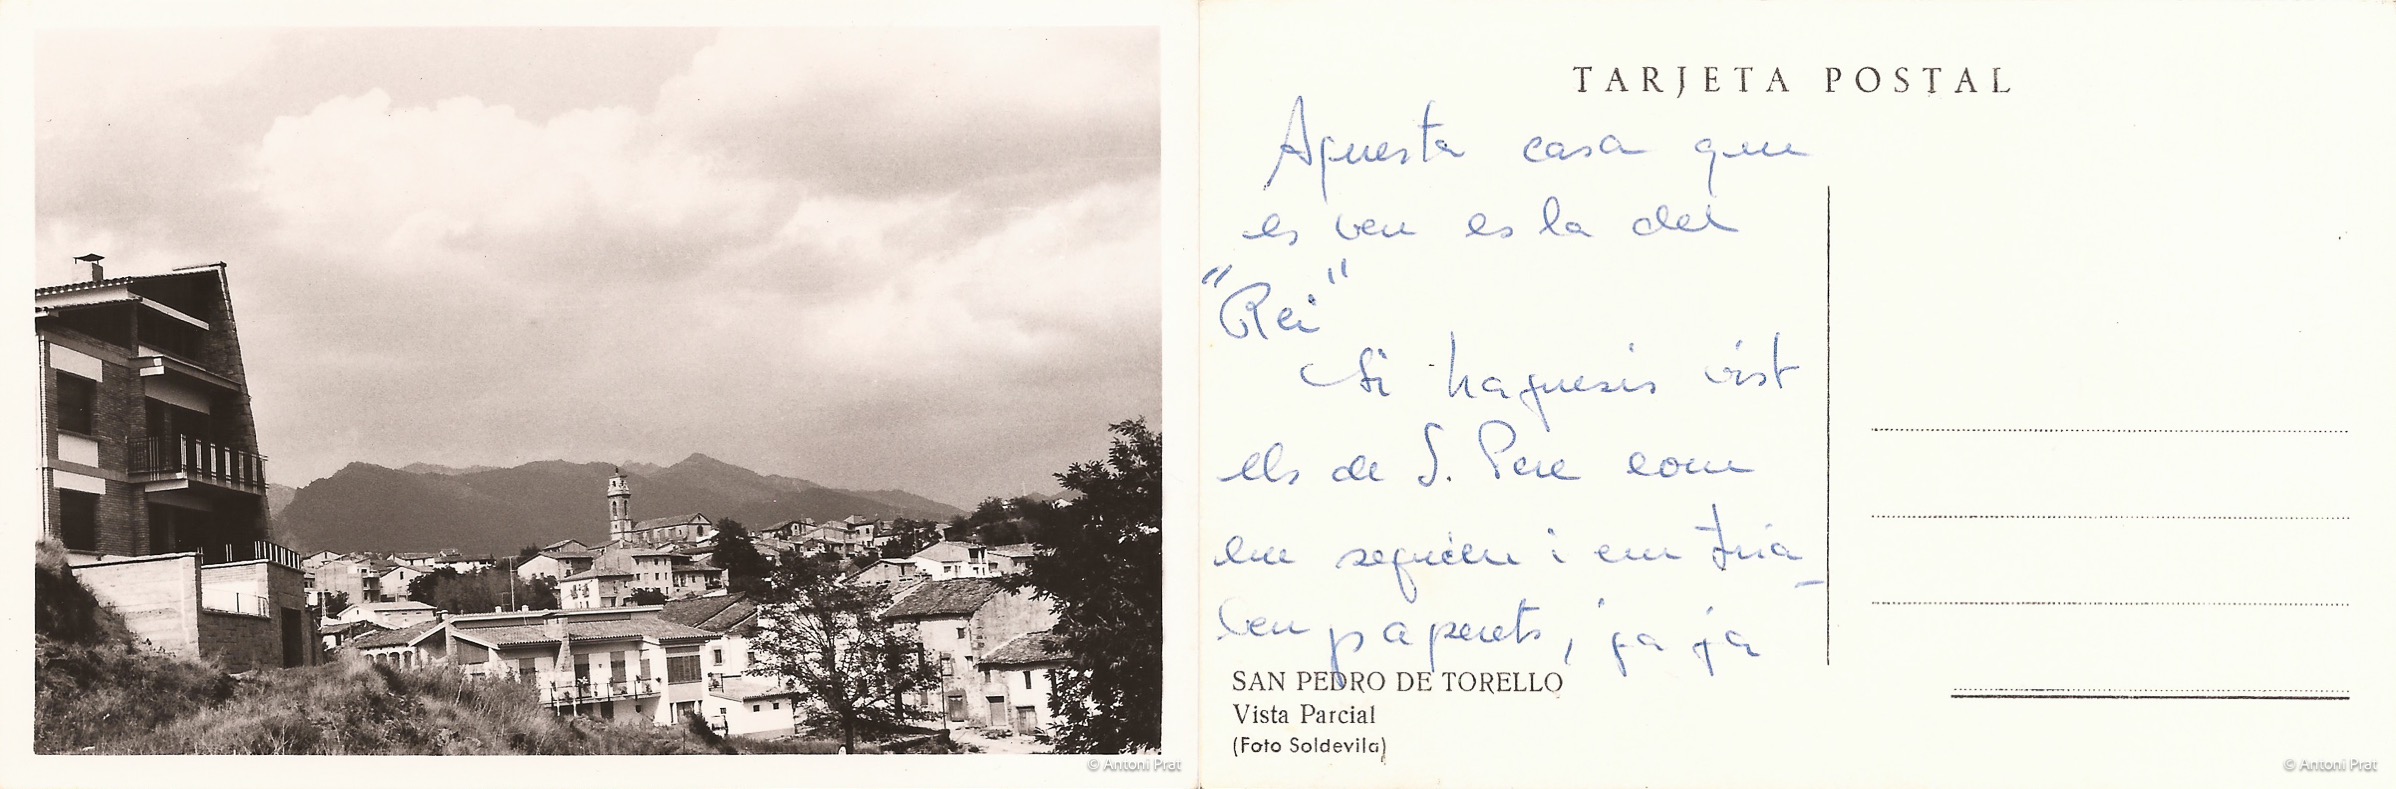 TARJETA POSTAL
Aquesta casa que
es veu es la del
"Rei"
Si haguesis vist
els de S. Pere com
em seguien i em tira-
ben paperets, ja ja
SAN PEDRO DE TORELLO
Vista Parcial
(Foto Soldevila)
© Antoni Prat
© Antoni Prat